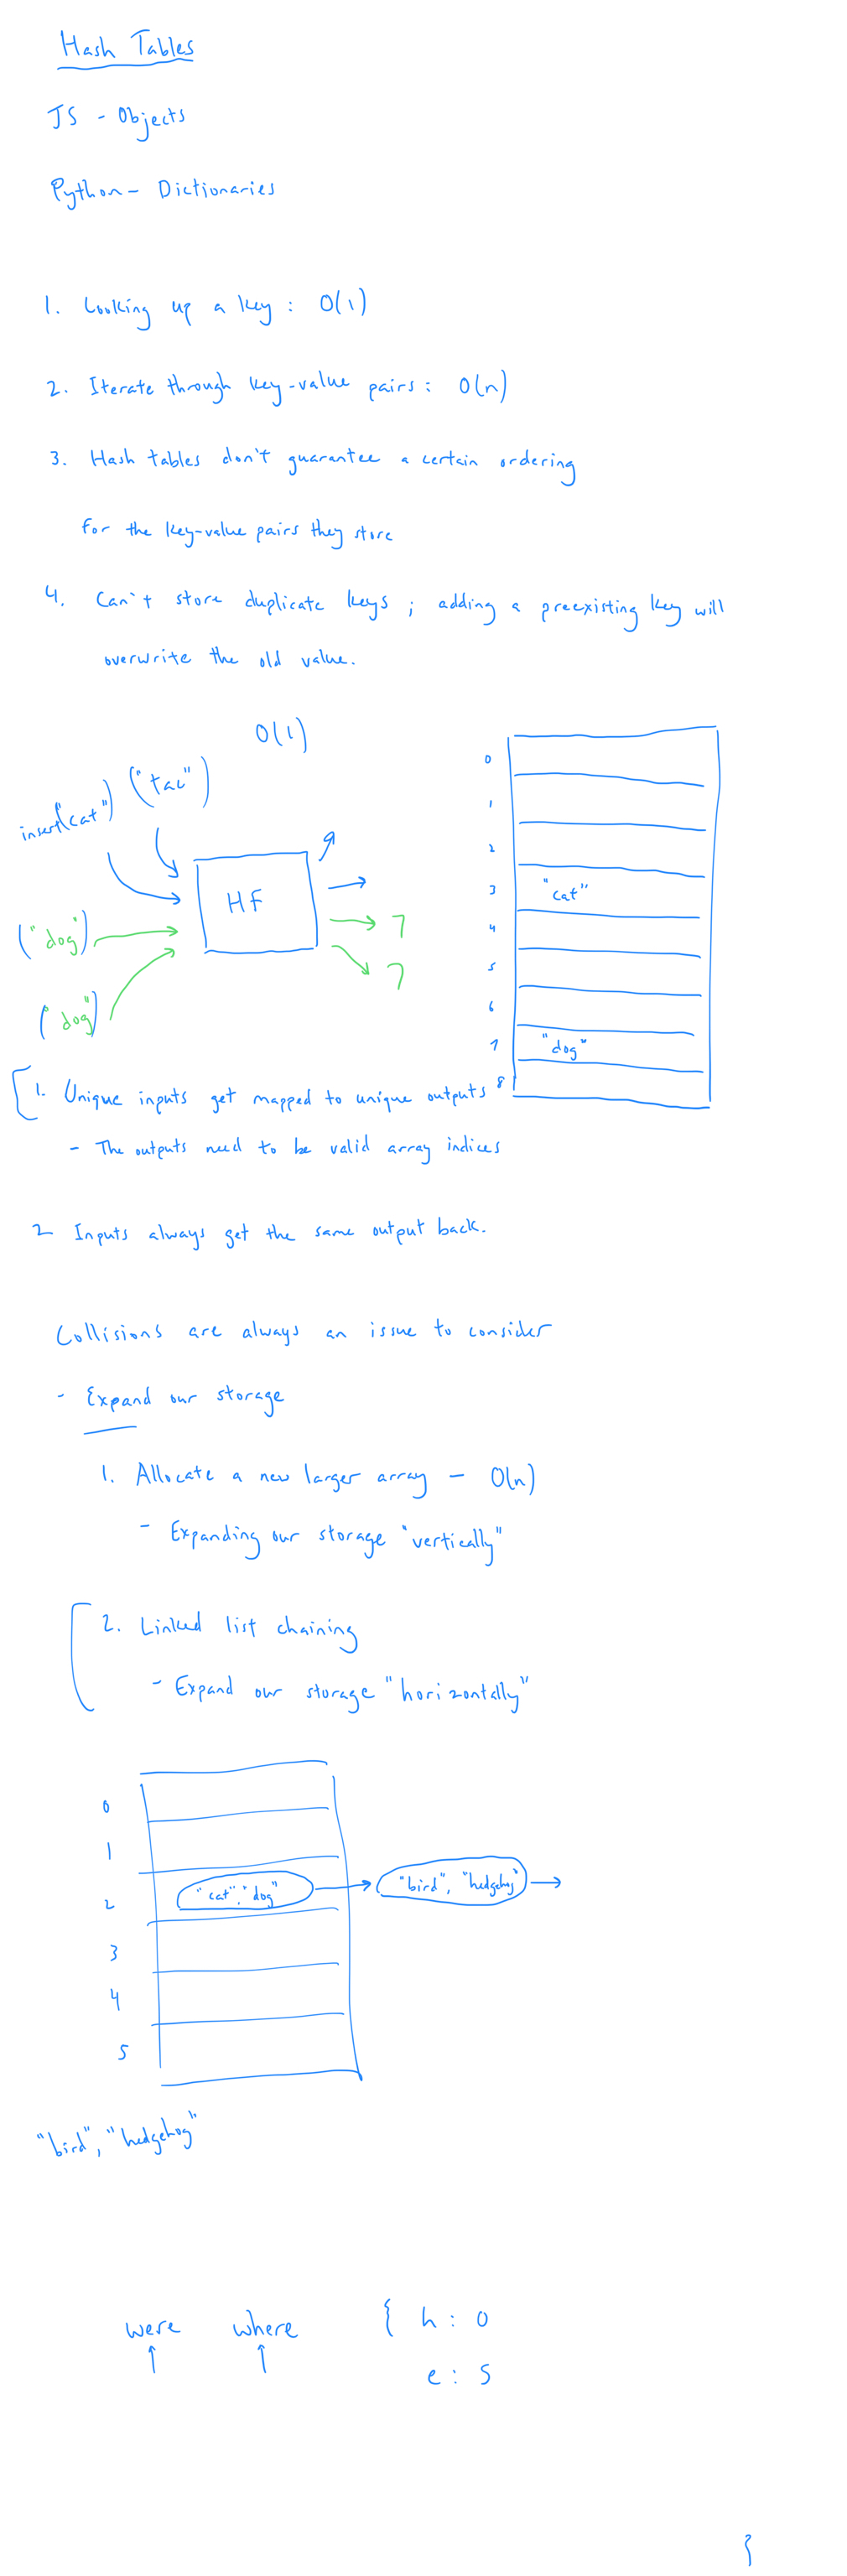 Hash Tables
JS - Objects
Python - Dictionaries
1. Looking up a key : O(1)
2. Iterate through key-value pairs : O(n)
3. Hash tables don't guarantee a certain ordering
for the key-value pairs they store
4. Can't store duplicate keys ; adding a preexisting key will
overwrite the old value.
O(1)
insert("cat") ("tac")
HF
("dog")
("dog")
7
7
0
1
2
3 "cat"
4
5
6
7 "dog"
8
1. Unique inputs get mapped to unique outputs
- The outputs need to be valid array indices
2 Inputs always get the same output back.
Collisions are always an issue to consider
- Expand our storage
1. Allocate a new larger array - O(n)
- Expanding our storage "vertically"
2. Linked list chaining
- Expand our storage "horizontally"
0
1
2 "cat", "dog" "bird", "hedgehog"
3
4
5
"bird", "hedgehog"
were where { h : 0
e : 5
}